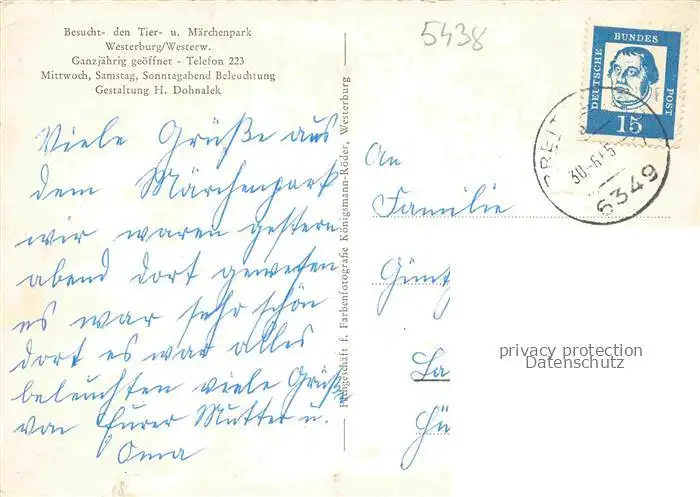 Besucht- den Tier- u. Märchenpark
Westerburg/Westerw.
Ganzjährig geöffnet - Telefon 223
Mittwoch, Samstag, Sonntagabend Beleuchtung
Gestaltung H. Dohnalek
5438
DEUTSCHE BUNDES POST
15
BREIT
30.-6.65
6349
Viele Grüße aus
dem Märchenpark
wir waren gestern
abend dort gewesen
es war sehr schön
dort es war alles
beleuchten viele Grüße
von Eurer Mutter u.
Oma
Fachgeschäft f. Farbenfotografie Königsmann-Röder, Westerburg
An
Familie
Günt
La
privacy protection
Datenschutz